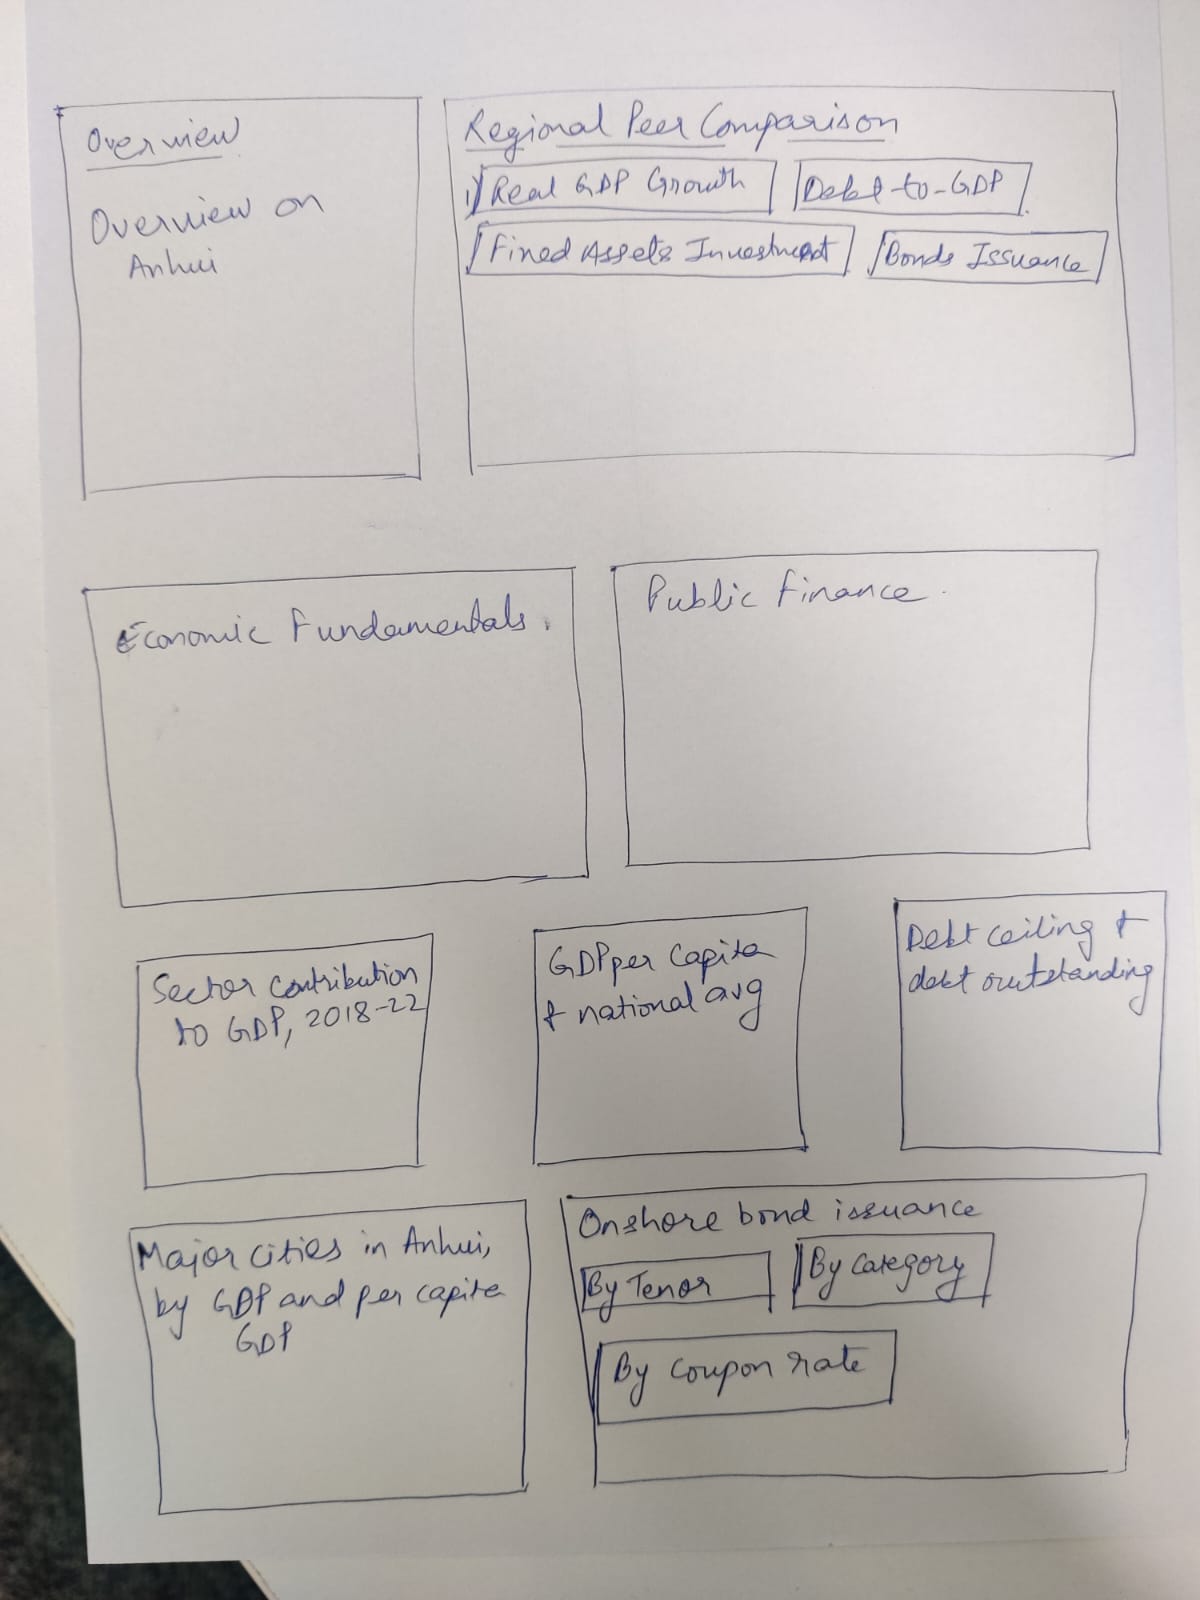 Overview
Overview on
Anhui
Regional Peer Comparison
1) Real GDP Growth
Debt-to-GDP
Fined Assets Investment
Bonds Issuance
Economic Fundamentals.
Public Finance.
Sector contribution
to GDP, 2018-22
GDP per capita
& national avg
Debt ceiling &
debt outstanding
Major cities in Anhui,
by GDP and per capita
GDP
Onshore bond issuance
By Tenor
By category
By coupon rate